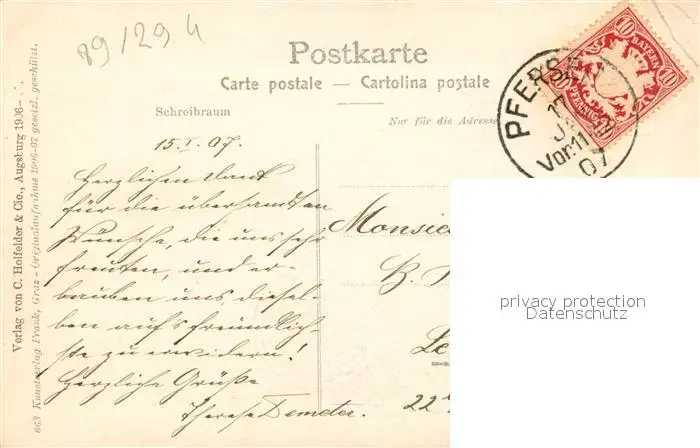 89/29 4
Postkarte
Carte postale — Cartolina postale
Schreibraum
Nur für die Adresse
15.I.07.
Herzlichen Dank
für die übersandten
Wünsche, die uns sehr
freuten, und er-
lauben uns, diesel-
ben auf's freundlich-
ste zu erwidern!
Herzliche Grüße
Therese Demeter.
Monsie
B.
Le
22
10 BAYERN 10
PFENNIG
PFERSE
17
Vor.11-12
07
privacy protection
Datenschutz
Verlag von C. Holfelder & Cie., Augsburg 1906-
663 Kunstverlag Frank, Graz - Originalaufnahme 1906-07 gesetzl. geschützt.